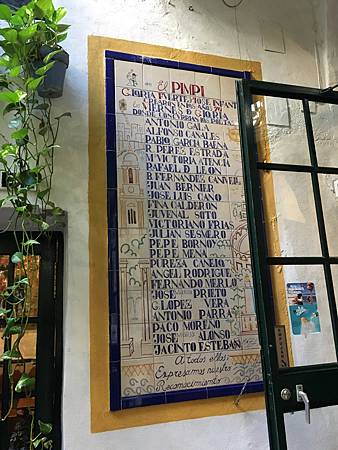 El PIMPI
GLORIA FUERTES JOSE INFANTE
CREARON EN 1971
VIERNES D GLORIA
DONDE
ANTONIO GALA
ALFONSO CANALES
PABLO GARCIA BAENA
R PEREZ ESTRADA
Mª VICTORIA ATENCIA
RAFAEL D LEON
B. FERNANDEZ CANIVELL
JUAN BERNIER
JOSE LUIS CANO
TINA CALDERON
JUVENAL SOTO
VICTORIANO FRIAS
JULIAN SESMERO
PEPE BORNOY
PEPE MENA
PUREZA CANELO
ANGEL RODRIGUEZ
FERNANDO MERLO
JOSE PRIETO
G. LOPEZ
ANTONIO PARRA
PACO MORENO
JOSE ALONSO
JACINTO ESTEBAN
A todos ellos
Expresamos nuestro
Reconocimiento